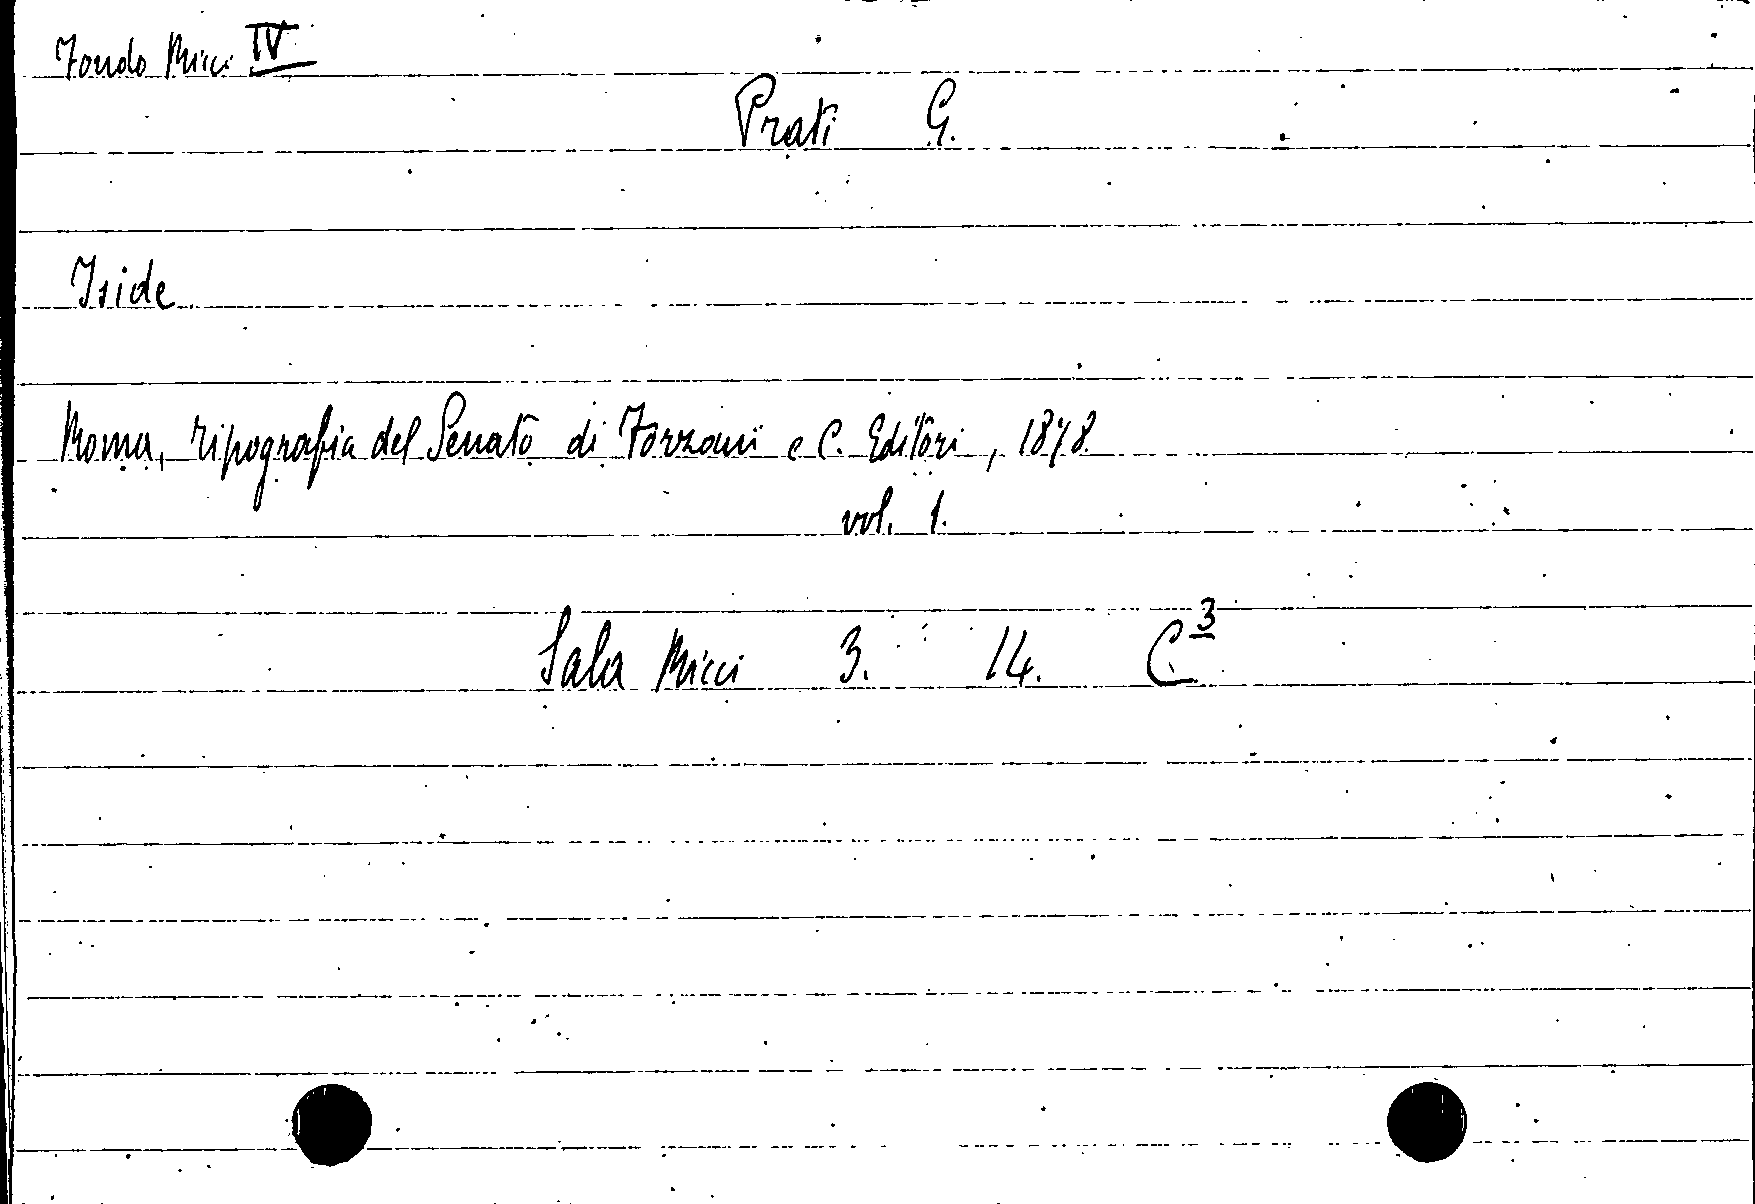 Fondo Micci IV
Prati G.
Iside
Roma, tipografia del Senato di Forzani e C. Editori, 1878.
vol. 1.
Sala Micci 3. 14. C³